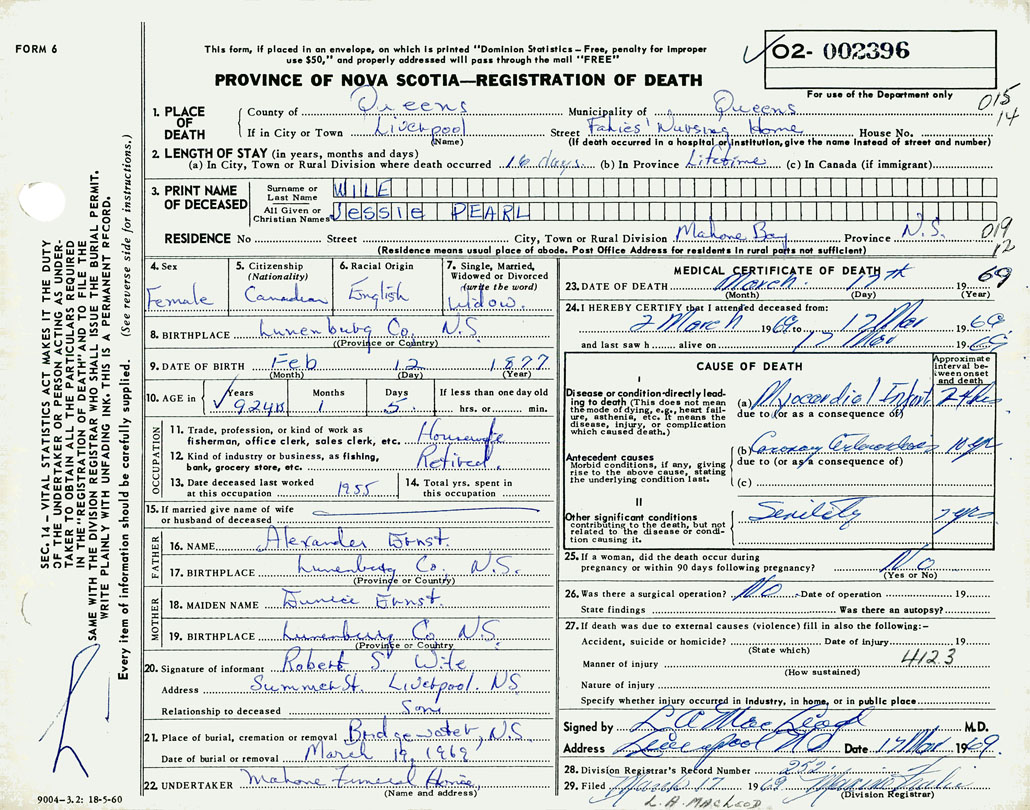 FORM 6
This form, if placed in an envelope, on which is printed "Dominion Statistics – Free, penalty for improper
use $50," and properly addressed will pass through the mail "FREE"
O2- 002396
For use of the Department only
PROVINCE OF NOVA SCOTIA—REGISTRATION OF DEATH
015
14
1. PLACE OF DEATH
County of Queens Municipality of Queens
If in City or Town Liverpool Street Fahies' Nursing Home House No.
(Name) (If death occurred in a hospital or institution, give the name instead of street and number)
2. LENGTH OF STAY (in years, months and days)
(a) In City, Town or Rural Division where death occurred 16 days (b) In Province Lifetime (c) In Canada (if immigrant)
3. PRINT NAME OF DECEASED
Surname or Last Name WILE
All Given or Christian Names JESSIE PEARL
RESIDENCE No Street City, Town or Rural Division Mahone Bay Province N.S.
019
12
(Residence means usual place of abode. Post Office Address for residents in rural parts not sufficient)
4. Sex
Female
5. Citizenship
(Nationality)
Canadian
6. Racial Origin
English
7. Single, Married,
Widowed or Divorced
(write the word)
Widow.
8. BIRTHPLACE Lunenburg Co. N.S.
(Province or Country)
9. DATE OF BIRTH Feb 12 1877
(Month) (Day) (Year)
10. AGE in Years Months Days If less than one day old
92 1 5 hrs. or min.
OCCUPATION
11. Trade, profession, or kind of work as
fisherman, office clerk, sales clerk, etc. Housewife
12. Kind of industry or business, as fishing,
bank, grocery store, etc. Retired.
13. Date deceased last worked
at this occupation 1955
14. Total yrs. spent in
this occupation
15. If married give name of wife
or husband of deceased
FATHER
16. NAME Alexander Ernst.
17. BIRTHPLACE Lunenburg Co. N.S.
(Province or Country)
MOTHER
18. MAIDEN NAME Eunice Ernst.
19. BIRTHPLACE Lunenburg Co N.S.
(Province or Country
20. Signature of informant Robert S Wile
Address Summer St. Liverpool. NS
Relationship to deceased Son
21. Place of burial, cremation or removal Bridgewater, N.S
Date of burial or removal March 19, 1969
22. UNDERTAKER Mahone Funeral Home
(Name and address)
MEDICAL CERTIFICATE OF DEATH
23. DATE OF DEATH March 17th 1969
(Month) (Day) (Year)
24. I HEREBY CERTIFY that I attended deceased from:
2 March 1969 to 17 Mar 1969
and last saw h alive on 17 Mar 1969
CAUSE OF DEATH
Approximate
interval be-
tween onset
and death
I
Disease or condition directly lead-
ing to death (This does not mean
the mode of dying, e.g., heart fail-
ure, asthenia, etc. It means the
disease, injury, or complication
which caused death.)
(a) Myocardial Infarct
due to (or as a consequence of)
Antecedent causes
Morbid conditions, if any, giving
rise to the above cause, stating
the underlying condition last.
(b) Coronary 10 yr
due to (or as a consequence of)
(c)
II
Other significant conditions
contributing to the death, but not
related to the disease or condi-
tion causing it.
Senility
25. If a woman, did the death occur during
pregnancy or within 90 days following pregnancy? No
(Yes or No)
26. Was there a surgical operation? No Date of operation 19
State findings Was there an autopsy?
27. If death was due to external causes (violence) fill in also the following:–
Accident, suicide or homicide? Date of injury 19
(State which)
Manner of injury 4123
(How sustained)
Nature of injury
Specify whether injury occurred in Industry, in home, or in public place
Signed by L A MacLeod M.D.
Address Liverpool NS Date 17 Mar 1969.
28. Division Registrar's Record Number 252
29. Filed March 17 1969
(Division Registrar)
L. A. MACLEOD
SEC. 14 – VITAL STATISTICS ACT MAKES IT THE DUTY
OF THE UNDERTAKER OR PERSON ACTING AS UNDER-
TAKER TO OBTAIN ALL THE PARTICULARS REQUIRED
IN THE "REGISTRATION OF DEATH" AND TO FILE THE
SAME WITH THE DIVISION REGISTRAR WHO SHALL ISSUE THE BURIAL PERMIT.
WRITE PLAINLY WITH UNFADING INK. THIS IS A PERMANENT RECORD.
Every item of information should be carefully supplied. (See reverse side for instructions.)
9004–3.2: 18-5-60